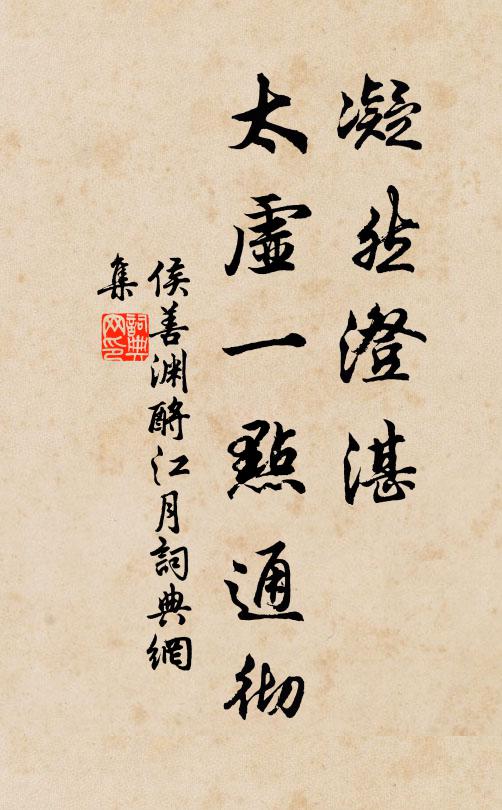 凝然澄湛
太虛一點通彻
侯善渊酹江月詞典網
集
詞典
网印